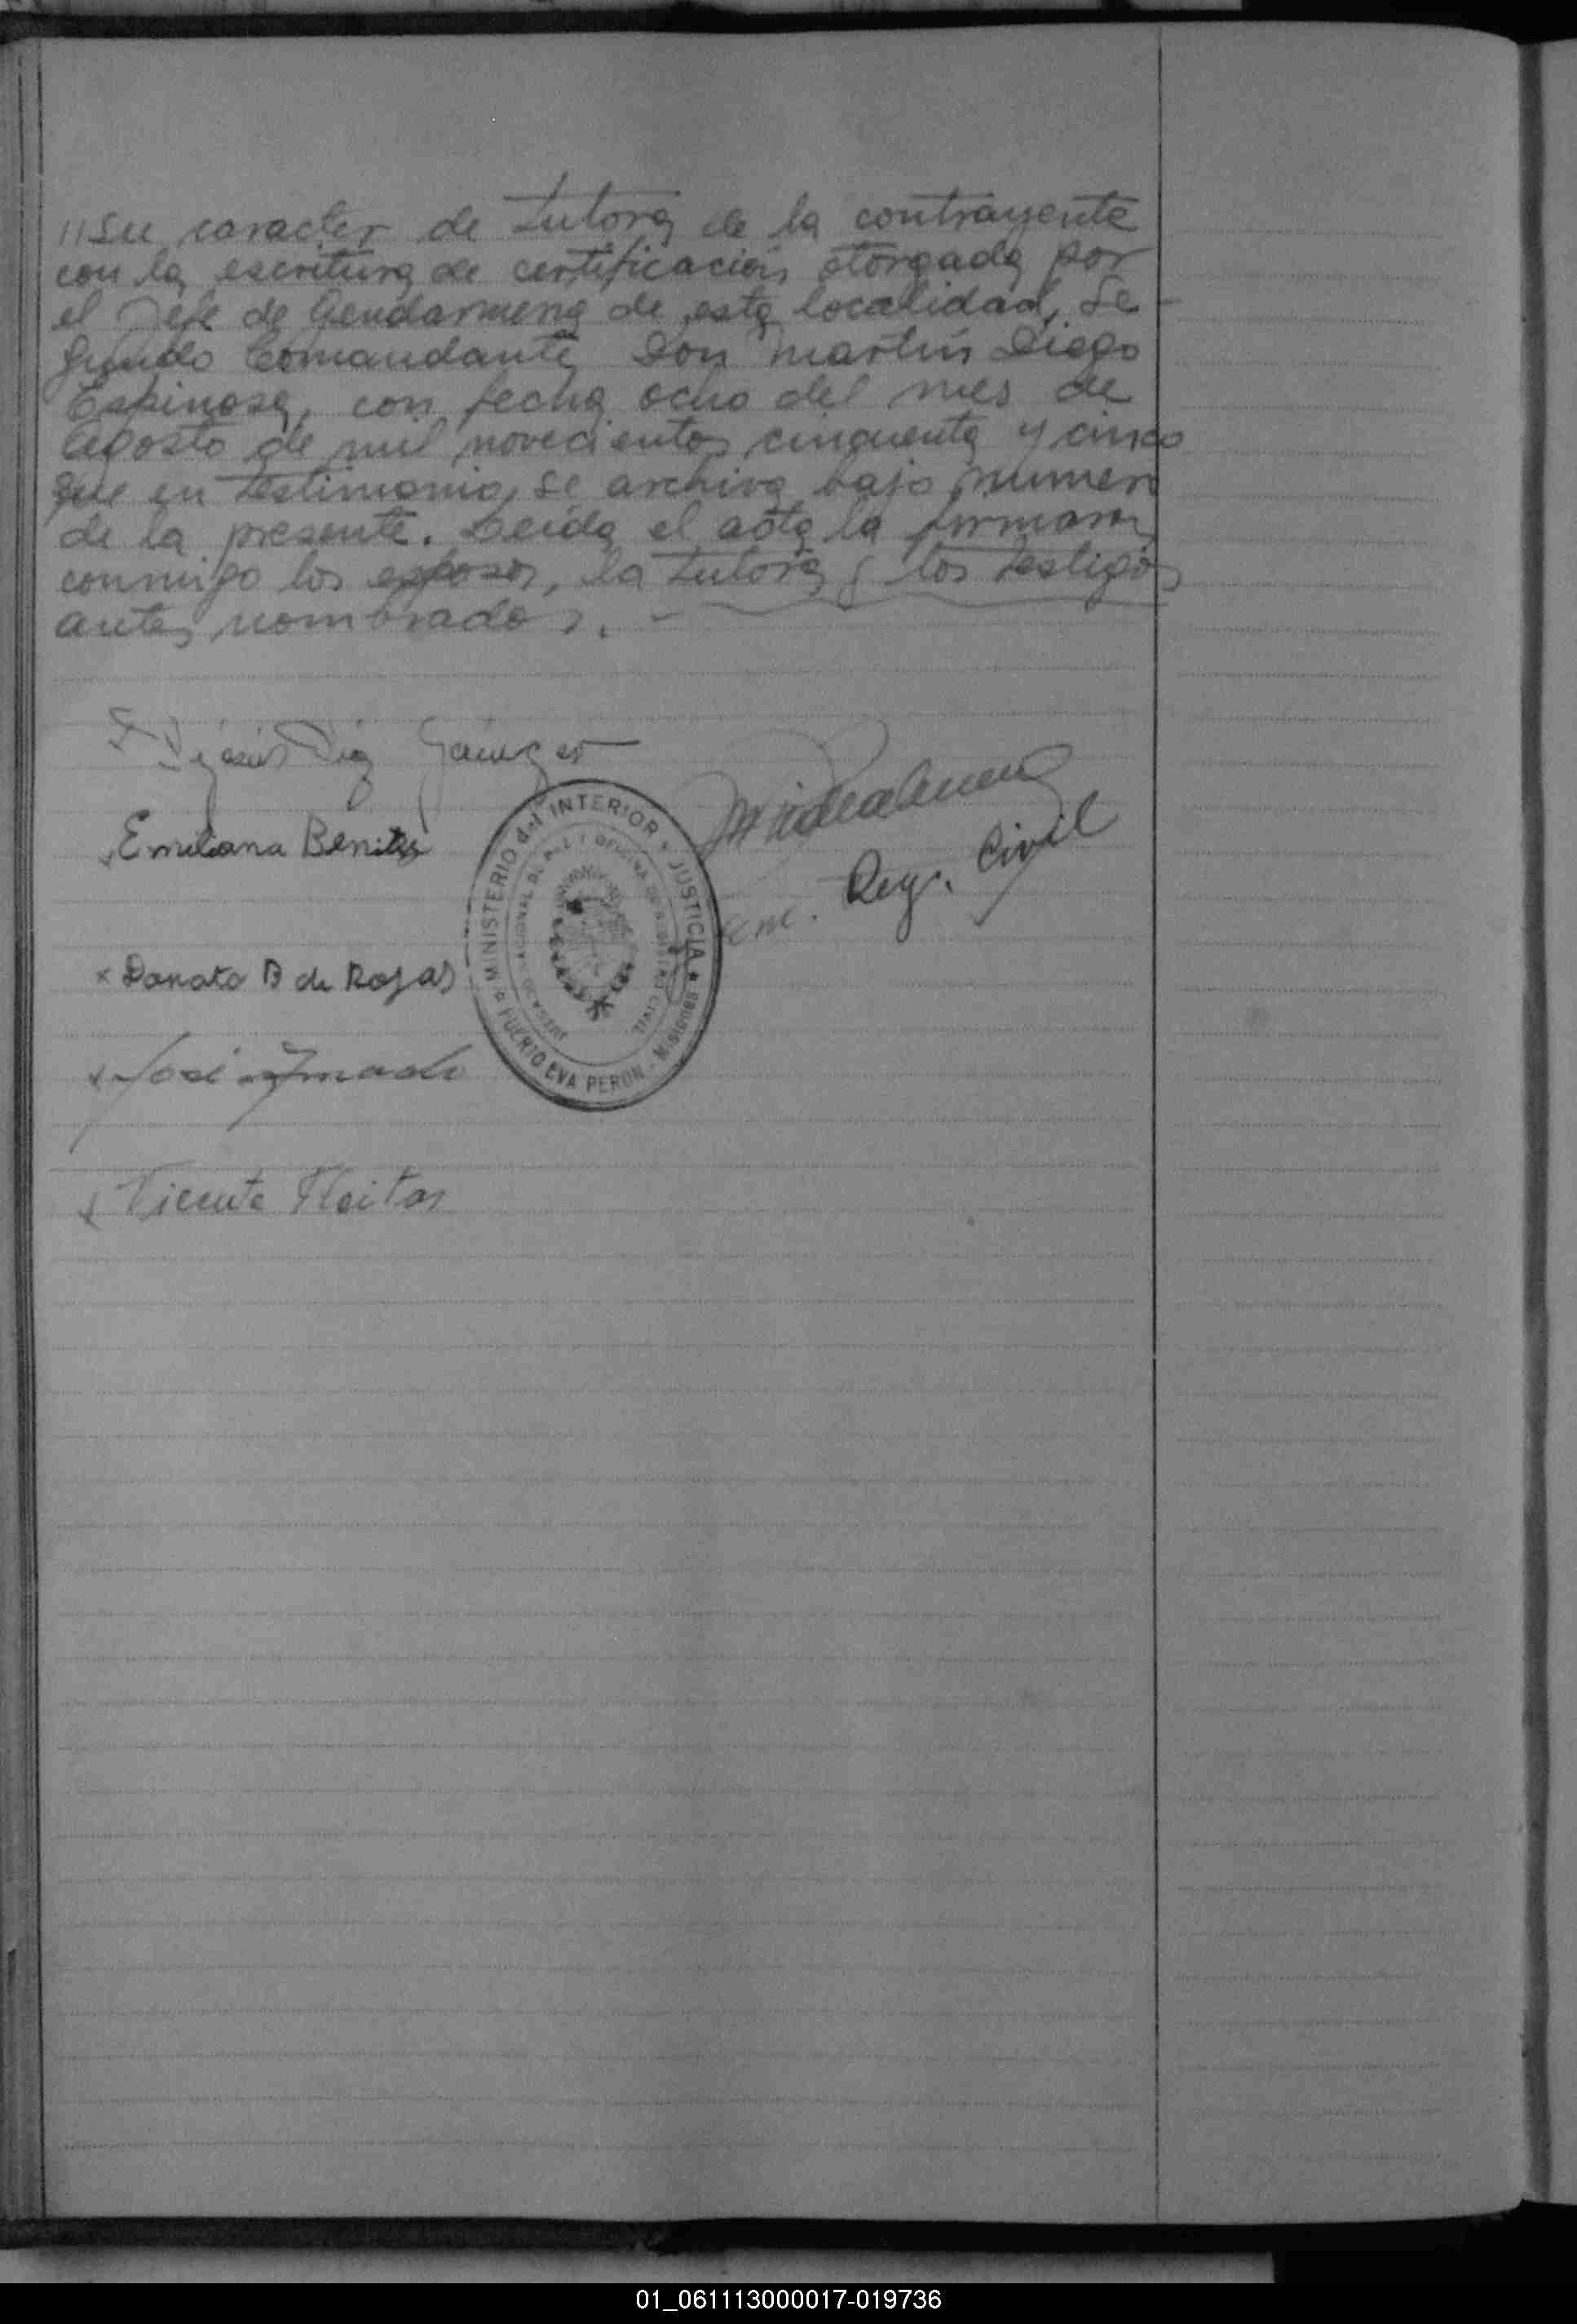 // su caracter de tutora de la contrayente
con la escritura de certificación otorgada por
el Jefe de Gendarmeria de esta localidad, Se-
gundo Comandante Don Martín Diego
Espinosa, con fecha ocho del mes de
Agosto de mil novecientos cincuenta y cinco
que en testimonio, se archiva bajo numero
de la presente. Leída el acta la firmaron
conmigo los esposos, la tutora y los testigos
antes nombrados. -
Emiliana Benitez
x Donata B de Rojas
José
x Vicente Fleitas
Enc. Reg. Civil
MINISTERIO del INTERIOR y JUSTICIA
PUERTO EVA PERON - Misiones
01_061113000017-019736